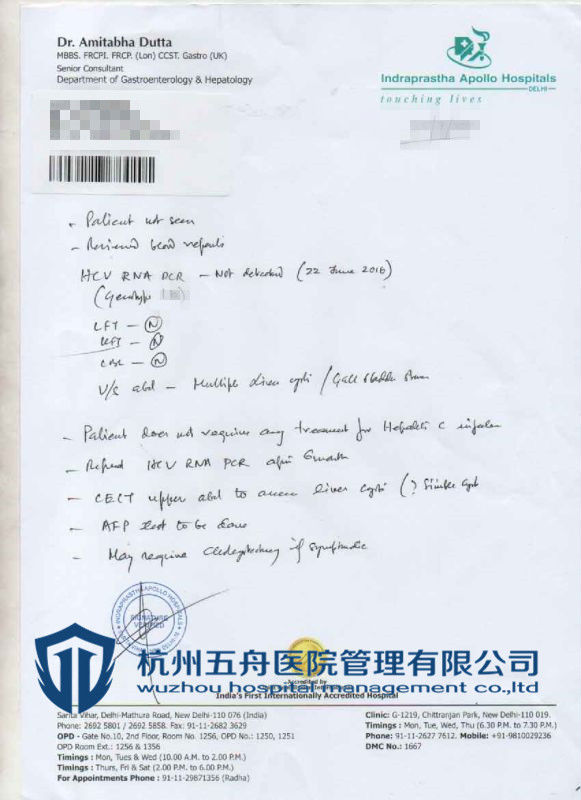 Dr. Amitabha Dutta
MBBS. FRCPI. FRCP. (Lon) CCST. Gastro (UK)
Senior Consultant
Department of Gastroenterology & Hepatology
Indraprastha Apollo Hospitals
DELHI
touching lives
- Patient not seen
- Reviewed blood reports
HCV RNA PCR - Not detected (22 June 2016)
(Genotype
LFT - N
KFT - N
CBC - N
U/S abd - Multiple liver cysts / Gall bladder stone
- Patient does not require any treatment for Hepatitis C infection
- Repeat HCV RNA PCR after 6 month
- CECT upper abd to assess liver cysts (? Simple cyst
- AFP test to be done
- May require Cholecystectomy if symptomatic
INDRAPRASTHA APOLLO HOSPITALS
SIGNATURE VERIFIED
杭州五舟医院管理有限公司
wuzhou hospital management co.,ltd
Accredited by
India's First Internationally Accredited Hospital
Sarita Vihar, Delhi-Mathura Road, New Delhi-110 076 (India)
Phone: 2692 5801 / 2692 5858. Fax: 91-11-2682 3629
OPD - Gate No.10, 2nd Floor, Room No. 1256, OPD No.: 1250, 1251
OPD Room Ext.: 1256 & 1356
Timings : Mon, Tues & Wed (10.00 A.M. to 2.00 P.M.)
Timings : Thurs, Fri & Sat (2.00 P.M. to 6.00 P.M.)
For Appointments Phone : 91-11-29871356 (Radha)
Clinic: G-1219, Chittranjan Park, New Delhi-110 019.
Timings : Mon, Tue, Wed, Thu (6.30 P.M. to 7.30 P.M.)
Phone: 91-11-2627 7612. Mobile: +91-9810029236
DMC No.: 1667